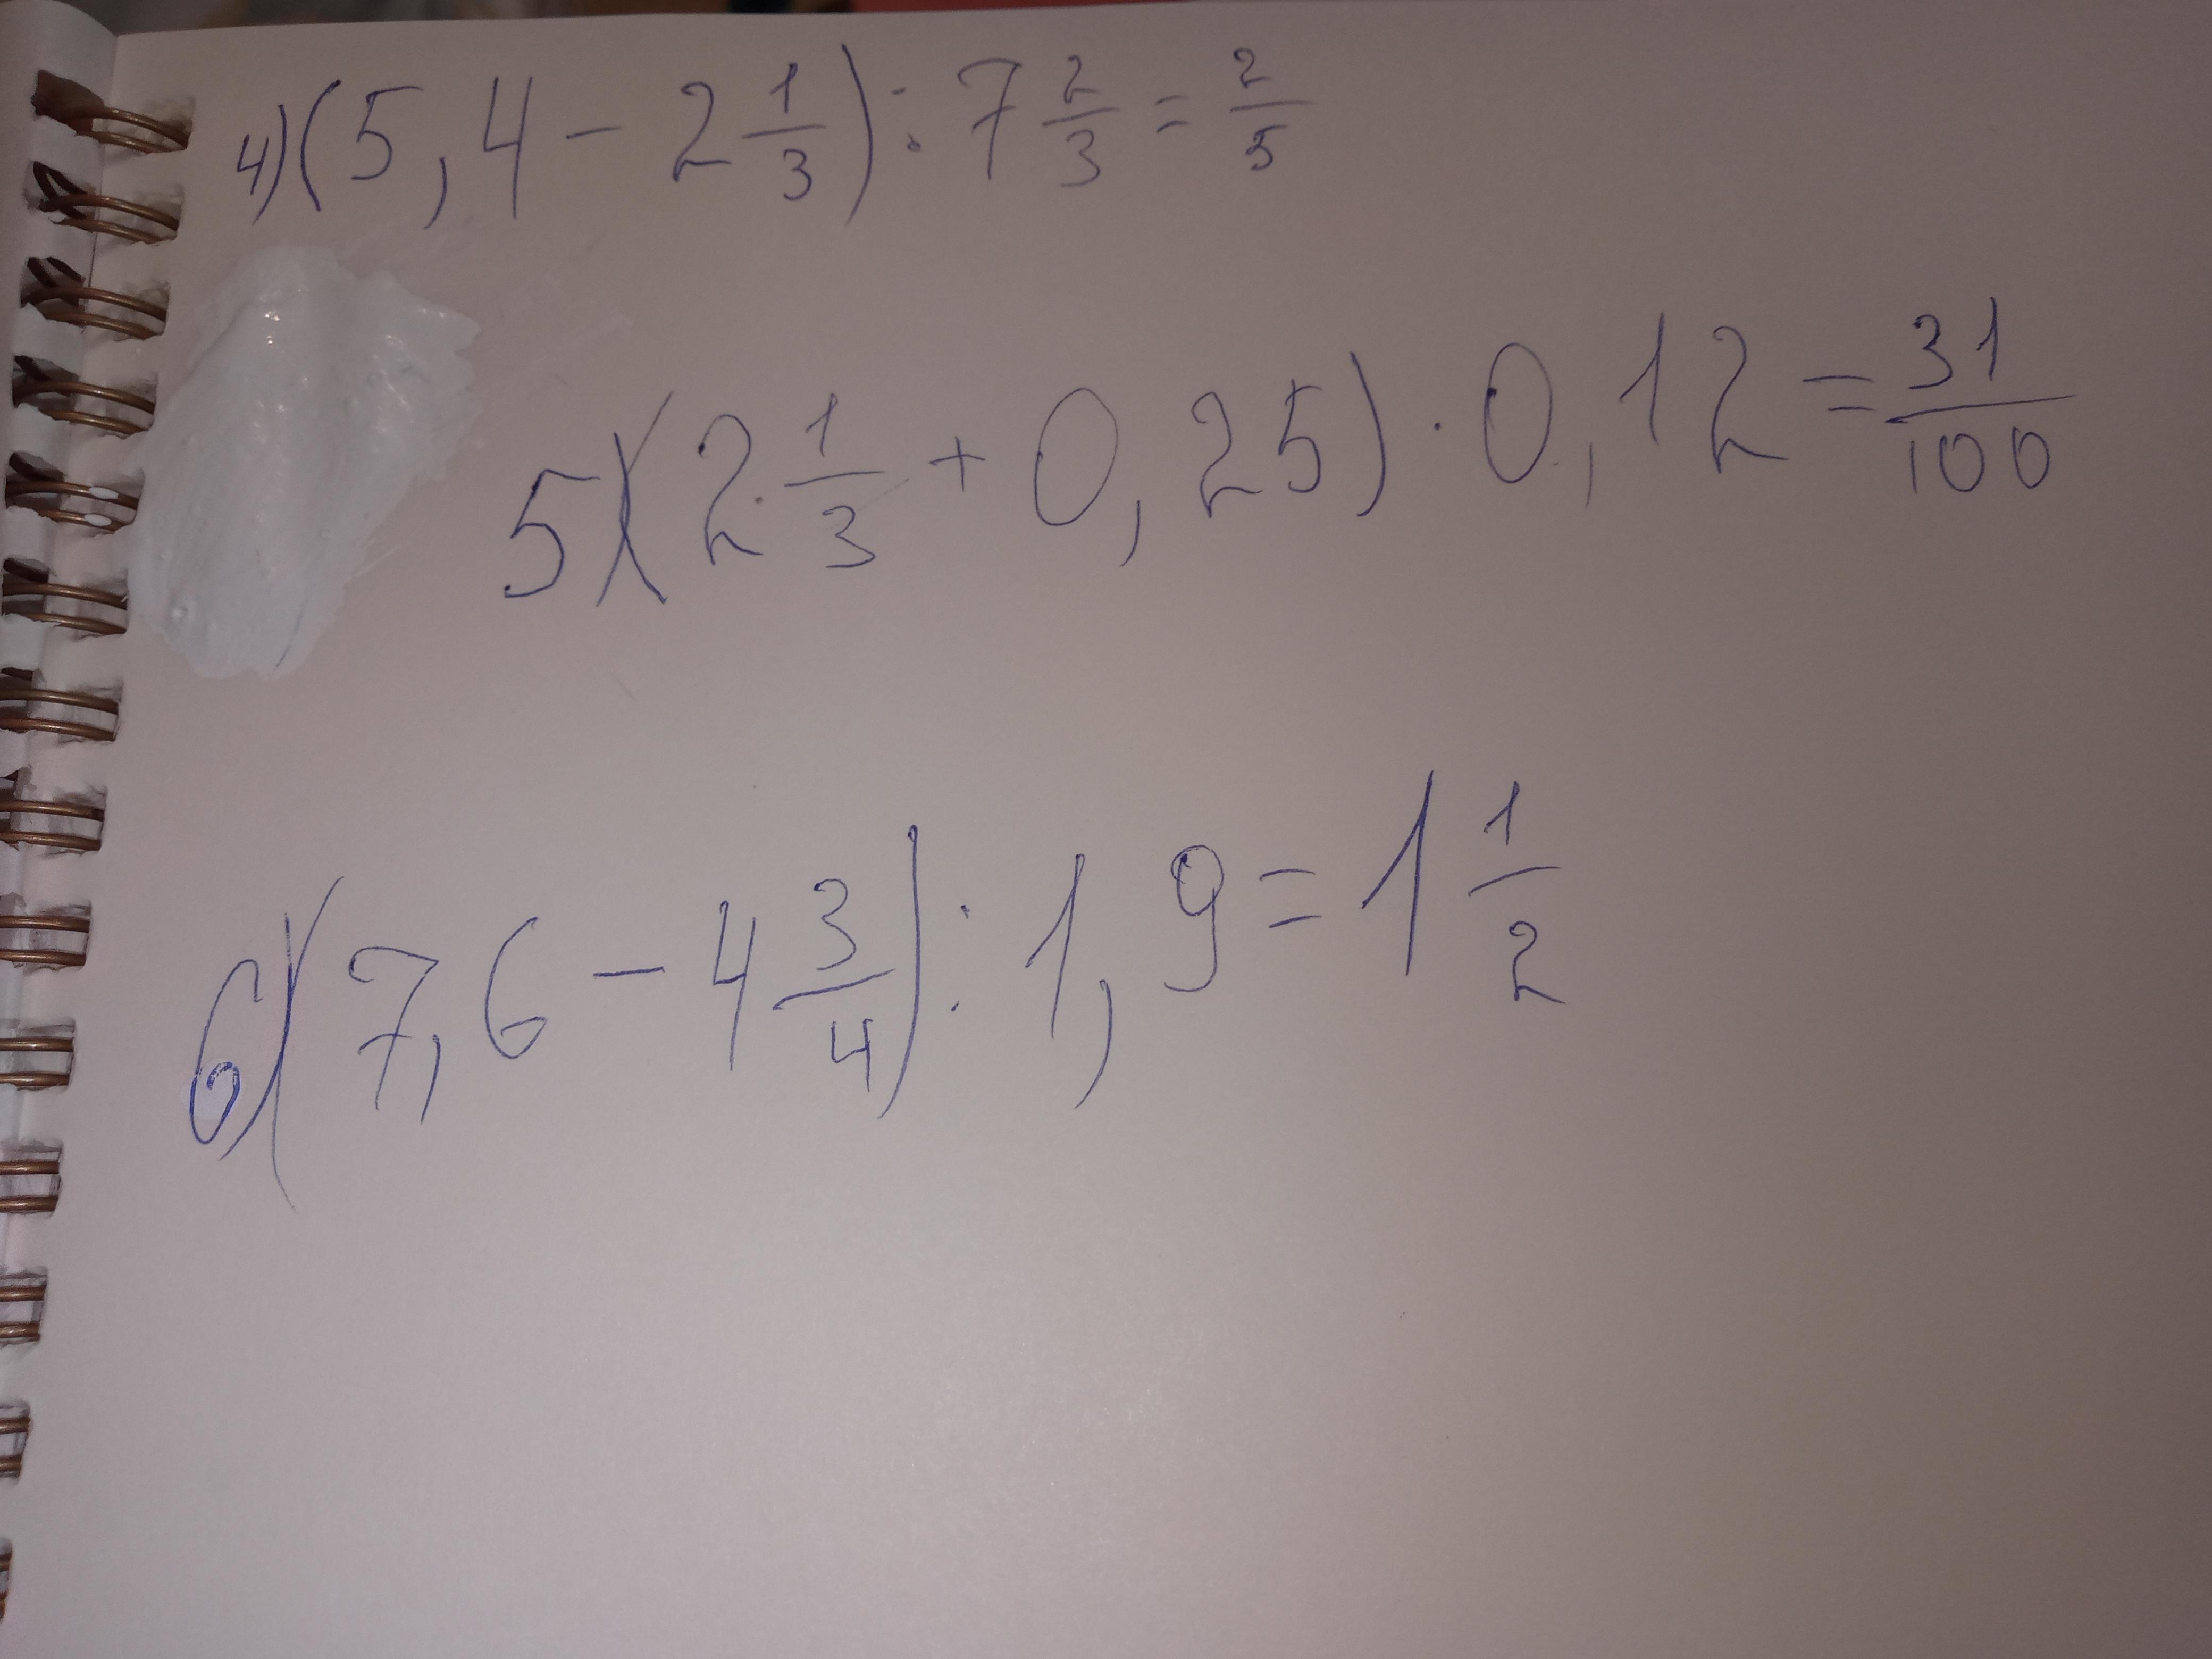 4) (5,4 - 2 1/3) : 7 2/3 = 2/5
5) (2 1/3 + 0,25) · 0,12 = 31/100
6) (7,6 - 4 3/4) : 1,9 = 1 1/2